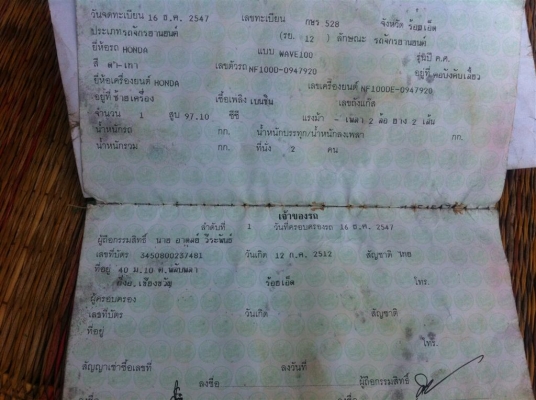 วันจดทะเบียน 16 ธ.ค. 2547 เลขทะเบียน กษว 528 จังหวัด ร้อยเอ็ด
ประเภทรถจักรยานยนต์ (รย. 12 ) ลักษณะ รถจักรยานยนต์
ยี่ห้อรถ HONDA แบบ WAVE100 รุ่นปี ค.ศ.
สี ดำ-เทา เลขตัวรถ NF100D-0947920 อยู่ที่ คอบังคับเลี้ยว
ยี่ห้อเครื่องยนต์ HONDA เลขเครื่องยนต์ NF100DE-0947920
อยู่ที่ ซ้ายเครื่อง เชื้อเพลิง เบนซิน เลขถังแก๊ส
จำนวน 1 สูบ 97.10 ซีซี แรงม้า - เพลา 2 ล้อ ยาง 2 เส้น
น้ำหนักรถ กก. น้ำหนักบรรทุก/น้ำหนักลงเพลา กก.
น้ำหนักรวม กก. ที่นั่ง 2 คน
เจ้าของรถ
ลำดับที่ 1 วันที่ครอบครองรถ 16 ธ.ค. 2547
ผู้ถือกรรมสิทธิ์ นาย
เลขที่บัตร 3450800237481 วันเกิด 12 ก.ค. 2512 สัญชาติ ไทย
ที่อยู่ 40 ม.10 ต.
อ.เชียงขวัญ ร้อยเอ็ด โทร.
ผู้ครอบครอง
เลขที่บัตร วันเกิด สัญชาติ
ที่อยู่
โทร.
สัญญาเช่าซื้อเลขที่ ลงวันที่
ลงชื่อ ผู้ถือกรรมสิทธิ์